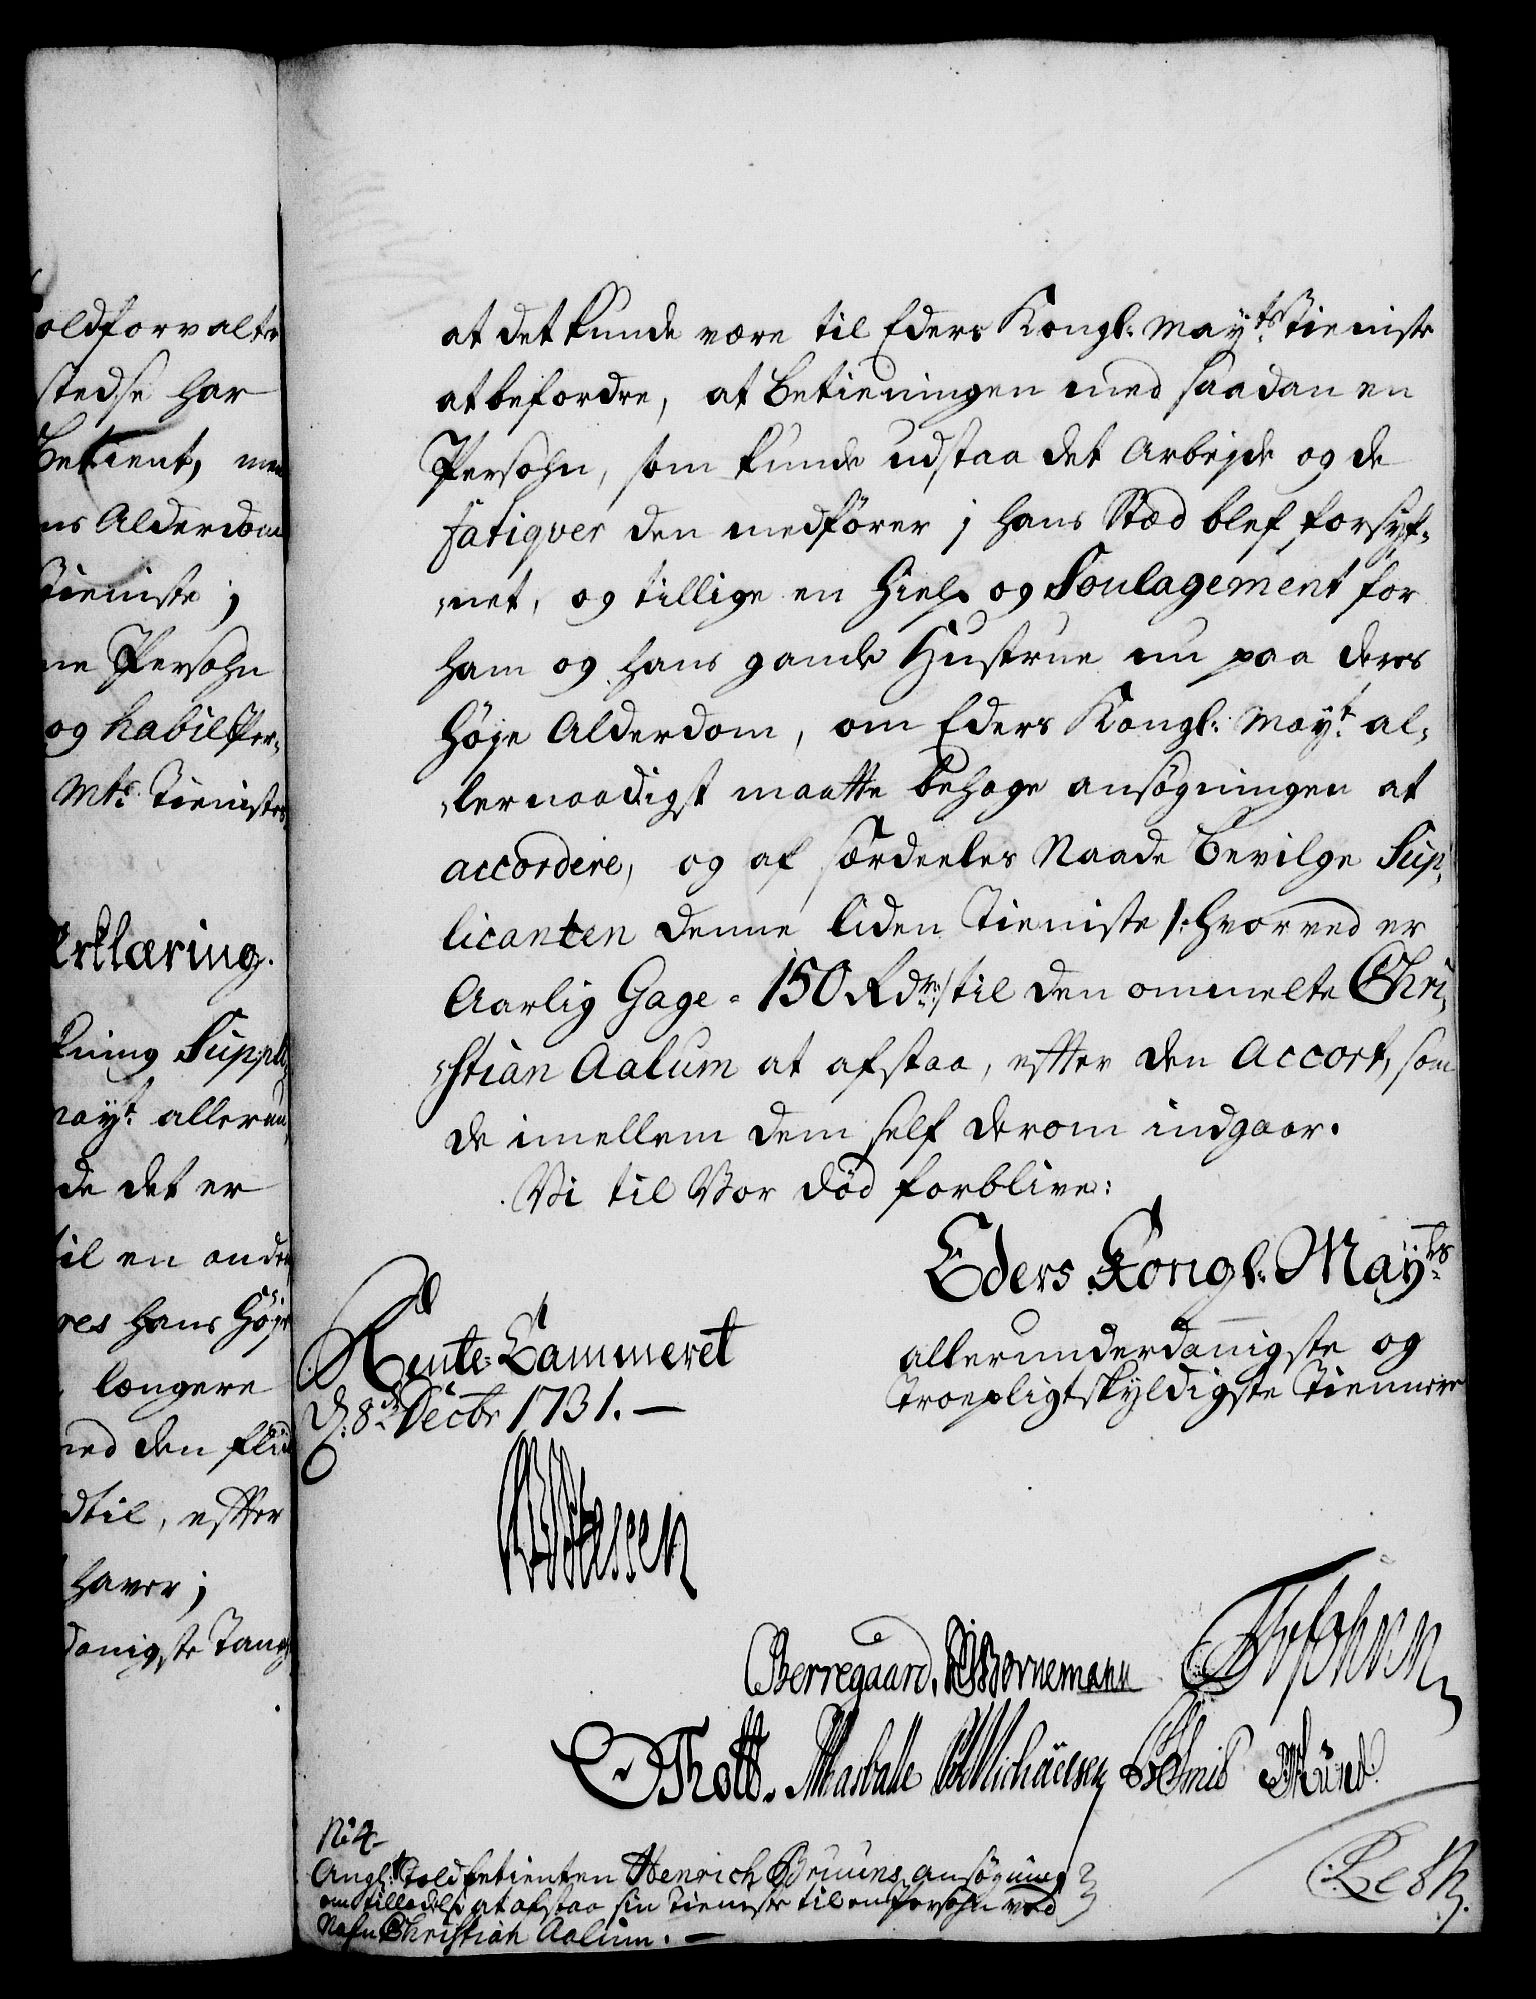 oldforvalter
stedse har
betient, men
ns Alderdom
Tieniste ;
ne Persohn
og habil Per-
Mts Tienistes
Erklæring.
kning Suppli-
mayt allerun-
de det er
til en anden
res hans Høje
længere
med den fliid
dtil, efter
haver ;
danigste Tancke
at det kunde være til Eders Kongl: Mayts Tieniste
at befordre, at Betieningen med saadan en
Persohn, som kunde udstaa det Arbejde og de
fatiqver den medfører j hans Stæd blef forsÿf-
-net, og tillige en Hielp og Soulagement for
ham og hans gamle Hustrue nu paa deres
høje Alderdom, om Eders Kongl: Mayt al-
-lernaadigst maatte behage ansøgningen at
accordere, og af særdeeles Naade bevilge Sup-
licanten denne liden Tieniste /: hvorved er
Aarlig Gage - 150 Rdr :/ til den ommelte Chri-
-stian Aalum at afstaa, effter den Accort, som
de imellem dem self derom indgaar.
Vi til Vor død forblive:
Eders Kongl: Mayts
allerunderdanigste og
Troepligtskyldigste Tiennere
Rente-Cammeret
d: 8de Decbr 1731. —
Berregaard. Bornemann
Thott. Massatte Michaelsen
No 4
Angl: Toldbetienten Henrich Bruuns ansøgning
om tilladelse at afstaa sin Tieniste til en Persohn ved
Nafn Christian Aalum. —